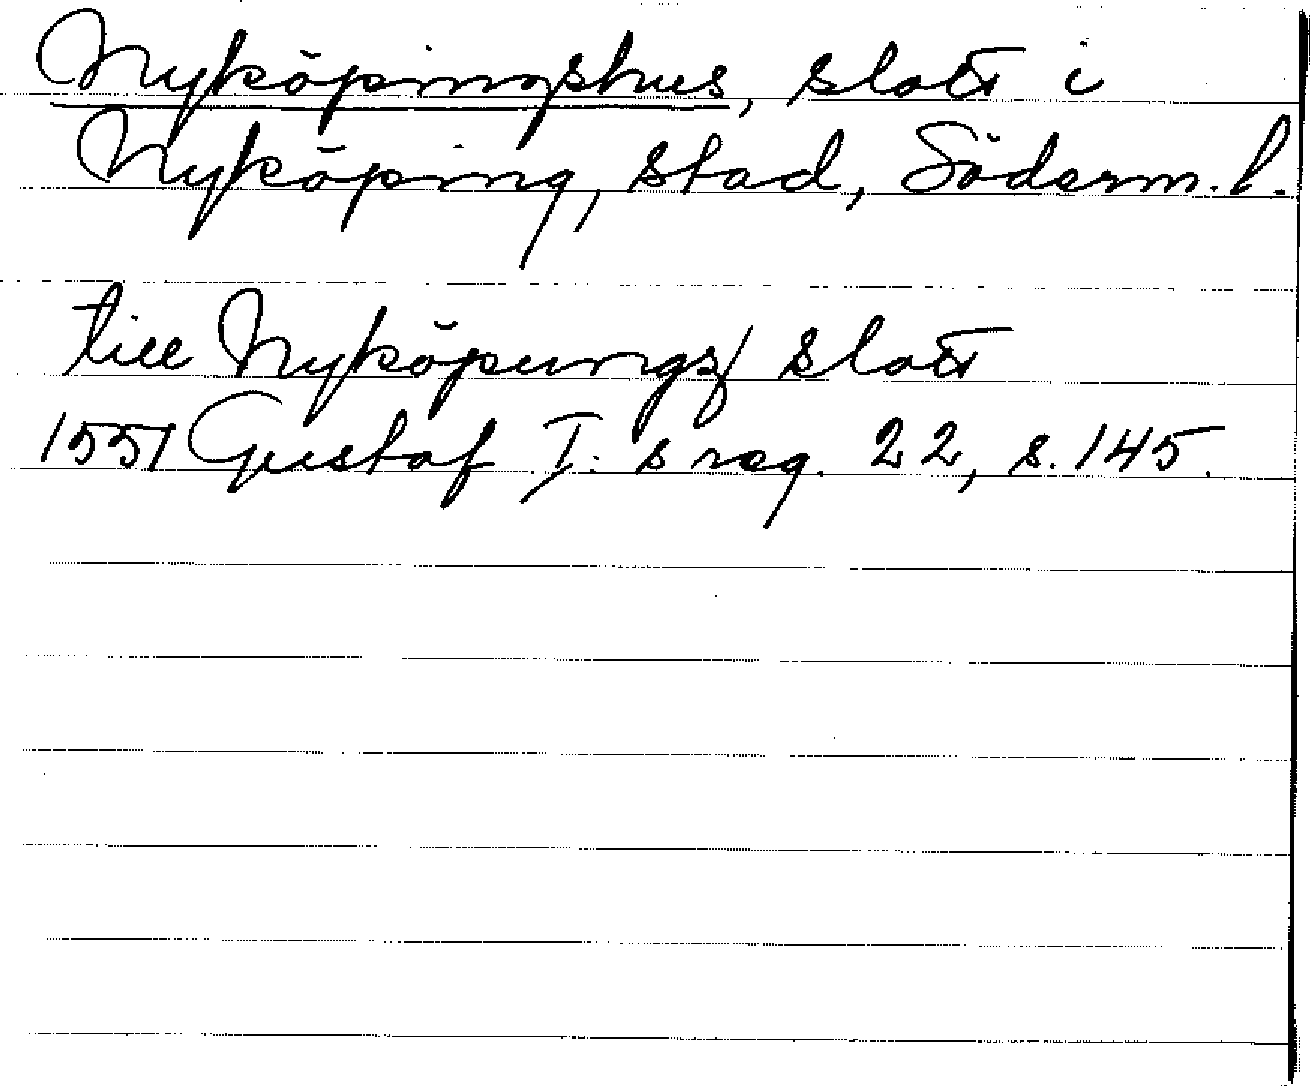 Nyköpingshus, slott i
Nyköping, stad, Söderm. l.
till Nyköpungs slott
1551 Gustaf I:s reg. 22, s. 145.